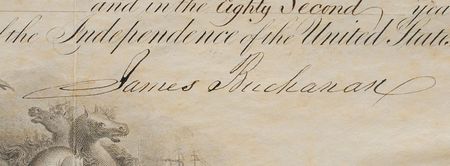 and in the Eighty Second year
of the Independence of the United States
James Buchanan